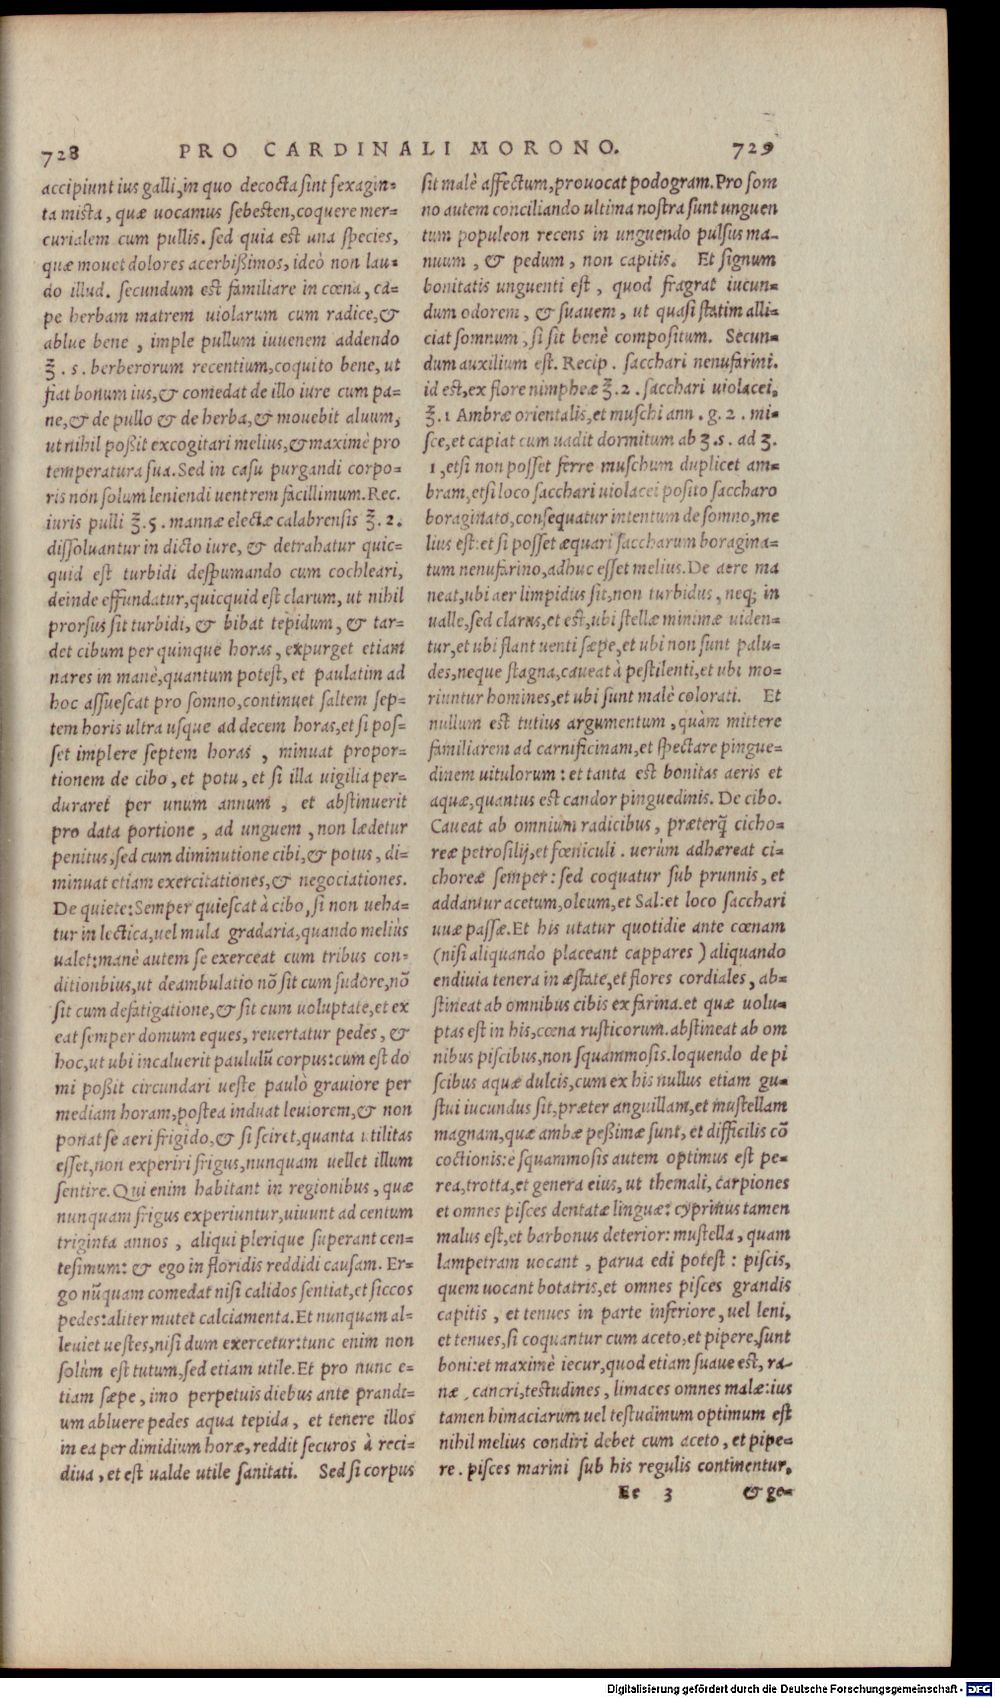 728 PRO CARDINALI MORONO. 729
accipiunt ius galli, in quo decocta sint sexagin=
ta mista, quæ uocamus sebesten, coquere mer=
curialem cum pullis. sed quia est una species,
quæ mouet dolores acerbißimos, ideò non lau=
do illud. secundum est familiare in cœna, ca=
pe herbam matrem uiolarum cum radice, &
ablue bene, imple pullum iuuenem addendo
℥. s. berberorum recentium, coquito bene, ut
fiat bonum ius, & comedat de illo iure cum pa=
ne, & de pullo & de herba, & mouebit aluum,
ut nihil poßit excogitari melius, & maximè pro
temperatura sua. Sed in casu purgandi corpo=
ris non solum leniendi uentrem facillimum. Rec.
iuris pulli ℥. 5. mannæ electæ calabrensis ℥. 2.
dissoluantur in dicto iure, & detrahatur quic=
quid est turbidi despumando cum cochleari,
deinde effundatur, quicquid est clarum, ut nihil
prorsus sit turbidi, & bibat tepidum, & tar=
det cibum per quinque horas, expurget etiam
nares in manè, quantum potest, et paulatim ad
hoc assuescat pro somno, continuet saltem sep=
tem horis ultra usque ad decem horas, et si pos=
set implere septem horas, minuat propor=
tionem de cibo, et potu, et si illa uigilia per=
duraret per unum annum, et abstinuerit
pro data portione, ad unguem, non lædetur
penitus, sed cum diminutione cibi, & potus, di=
minuat etiam exercitationes, & negociationes.
De quiete: Semper quiescat à cibo, si non ueha=
tur in lectica, uel mula gradaria, quando meliùs
ualet: manè autem se exerceat cum tribus con=
ditionbius, ut deambulatio nō sit cum sudore, nō
sit cum defatigatione, & sit cum uoluptate, et ex
eat semper domum eques, reuertatur pedes, &
hoc, ut ubi incaluerit paululū corpus: cum est do
mi poßit circundari ueste paulò grauiore per
mediam horam, postea induat leuiorem, & non
ponat se aeri frigido, & si sciret, quanta utilitas
esset, non experiri frigus, nunquam uellet illum
sentire. Qui enim habitant in regionibus, quæ
nunquam frigus experiuntur, uiuunt ad centum
triginta annos, aliqui plerique superant cen=
tesimum: & ego in floridis reddidi causam. Er=
go nūquam comedat nisi calidos sentiat, et siccos
pedes: aliter mutet calciamenta. Et nunquam al=
leuiet uestes, nisi dum exercetur: tunc enim non
solùm est tutum, sed etiam utile. Et pro nunc e=
tiam sæpe, imo perpetuis diebus ante prandi=
um abluere pedes aqua tepida, et tenere illos
in ea per dimidium horæ, reddit securos à reci=
diua, et est ualde utile sanitati. Sed si corpus
sit malè affectum, prouocat podogram. Pro som
no autem conciliando ultima nostra sunt unguen
tum populeon recens in unguendo pulsus ma=
nuum, & pedum, non capitis. Et signum
bonitatis unguenti est, quod fragrat iucun=
dum odorem, & suauem, ut quasi statim alli=
ciat somnum, si sit benè compositum. Secun=
dum auxilium est. Recip. sacchari nenufarini.
id est, ex flore nimpheæ ℥. 2. sacchari uiolacei,
℥. 1 Ambræ orientalis, et muschi ann. g. 2. mi=
sce, et capiat cum uadit dormitum ab ʒ. s. ad ʒ.
1, etsi non posset ferre muschum duplicet am=
bram, etsi loco sacchari uiolacei posito saccharo
boraginato, consequatur intentum de somno, me
lius est: et si posset æquari saccharum boragina=
tum nenufarino, adhuc esset melius. De aere ma
neat, ubi aer limpidus sit, non turbidus, neq; in
ualle, sed clarus, et est, ubi stellæ minimæ uiden=
tur, et ubi flant uenti sæpe, et ubi non sunt palu=
des, neque stagna, caueat à pestilenti, et ubi mo=
riuntur homines, et ubi sunt malè colorati. Et
nullum est tutius argumentum, quàm mittere
familiarem ad carnificinam, et spectare pingue=
dinem uitulorum: et tanta est bonitas aeris et
aquæ, quantus est candor pinguedinis. De cibo.
Caueat ab omnium radicibus, præterq̃ cicho=
reæ petrosilij, et fœniculi. uerùm adhæreat ci=
choreæ semper: sed coquatur sub prunnis, et
addantur acetum, oleum, et Sal: et loco sacchari
uuæ passæ. Et his utatur quotidie ante cœnam
(nisi aliquando placeant cappares) aliquando
endiuia tenera in æstate, et flores cordiales, ab=
stineat ab omnibus cibis ex farina. et quæ uolu=
ptas est in his, cœna rusticorum. abstineat ab om
nibus piscibus, non squammosis. loquendo de pi
scibus aquæ dulcis, cum ex his nullus etiam gu=
stui iucundus sit, præter anguillam, et mustellam
magnam, quæ ambæ peßimæ sunt, et difficilis cō
coctionis: è squammosis autem optimus est pe=
rea, trotta, et genera eius, ut themali, carpiones
et omnes pisces dentatæ linguæ: cyprinus tamen
malus est, et barbonus deterior: mustella, quam
lampetram uocant, parua edi potest: piscis,
quem uocant botatris, et omnes pisces grandis
capitis, et tenues in parte inferiore, uel leni,
et tenues, si coquantur cum aceto, et pipere, sunt
boni: et maximè iecur, quod etiam suaue est, ra=
næ, cancri, testudines, limaces omnes malæ: ius
tamen himaciarum uel testudinum optimum est
nihil melius condiri debet cum aceto, et pipe=
re. pisces marini sub his regulis continentur,
Ee 3 & ge=
Digitalisierung gefördert durch die Deutsche Forschungsgemeinschaft - DFG